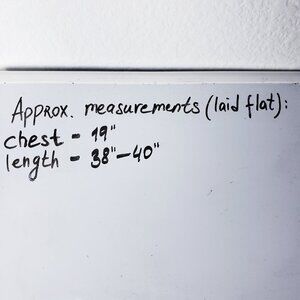 Approx. measurements (laid flat):
chest - 19"
length - 38"-40"